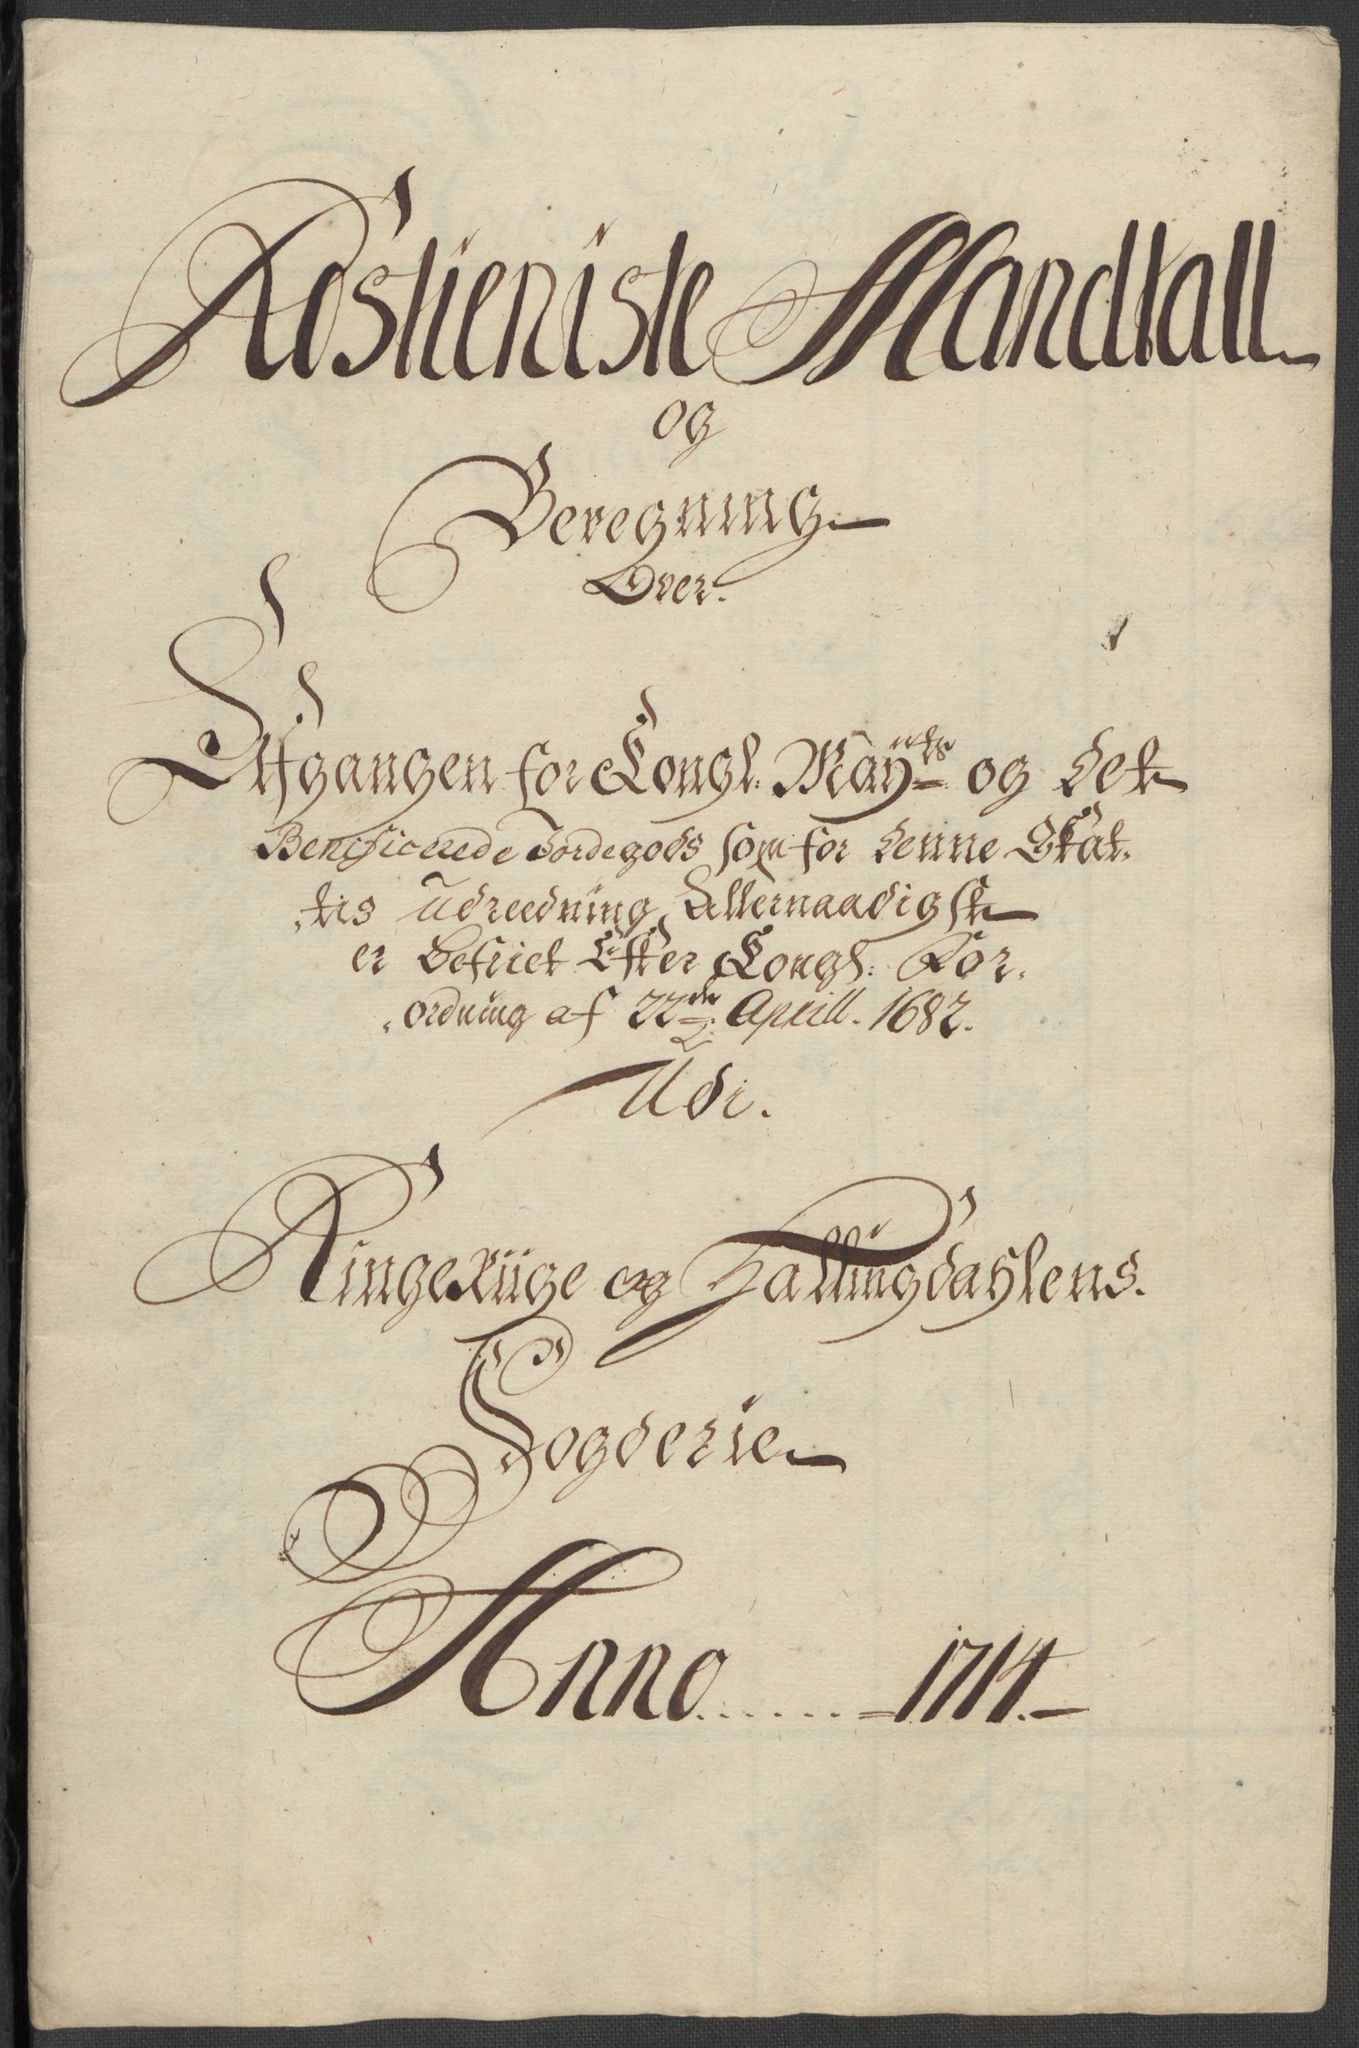 Rostieniste Mandtall
og
Beregning
Over.
Afgangen for Kongl: Maÿts og det
Benificerede Jordegods som for denne Skat-
tis Udreedning Allernaadigst
er befriet Efter Kongl: For-
ordning af 22de Aprill. 1682.
Udi.
Ringeriige og Hallingdahlens.
Fogderie
Anno 1714.